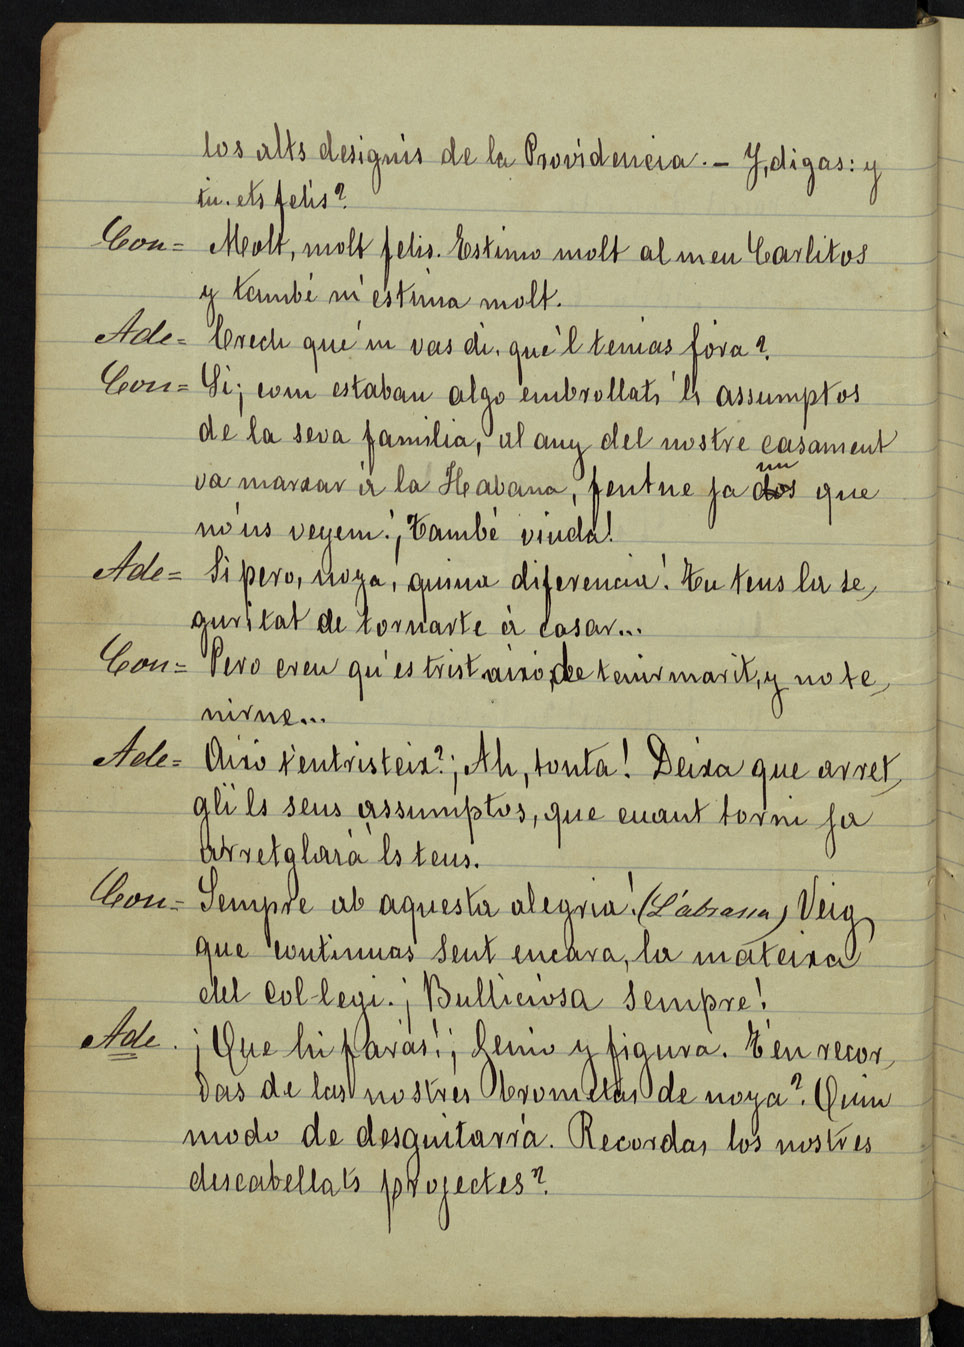 los alts designis de la Providencia. — Y, digas: y
tu. ets felis?
Con= Molt, molt felis. Estimo molt al meu Carlitos
y també m'estima molt.
Ade= Crech que'm vas di, que'l tenias fóra?
Con= Si; com estaban algo embrollats 'ls assumptos
de la seva familia, al any del nostre casament
va marxar á la Habana, fentne ja dos un que
no'ns veyem. ¡També viuda!
Ade= Si pero, noya, quina diferencia! Tu tens la se,
guritat de tornarte á casar...
Con= Pero creu qu'es trist aixó, de tenir marit, y no te,
nirne...
Ade= Aixó t'entristeix? ¡Ah, tonta! Deixa que arret,
gli 'ls seus assumptos, que cuant torni ja
arretglará 'ls teus.
Con= Sempre ab aquesta alegria! (L'abrassa) Veig
que continuas sent encara, la mateixa
del col-legi. ¡Bulliciosa sempre!
Ade. ¡Que hi farás! ¡Genio y figura. T'en recor,
das de las nostres brometas de noya? Quin
modo de desguitarra. Recordas los nostres
descabellats projectes?